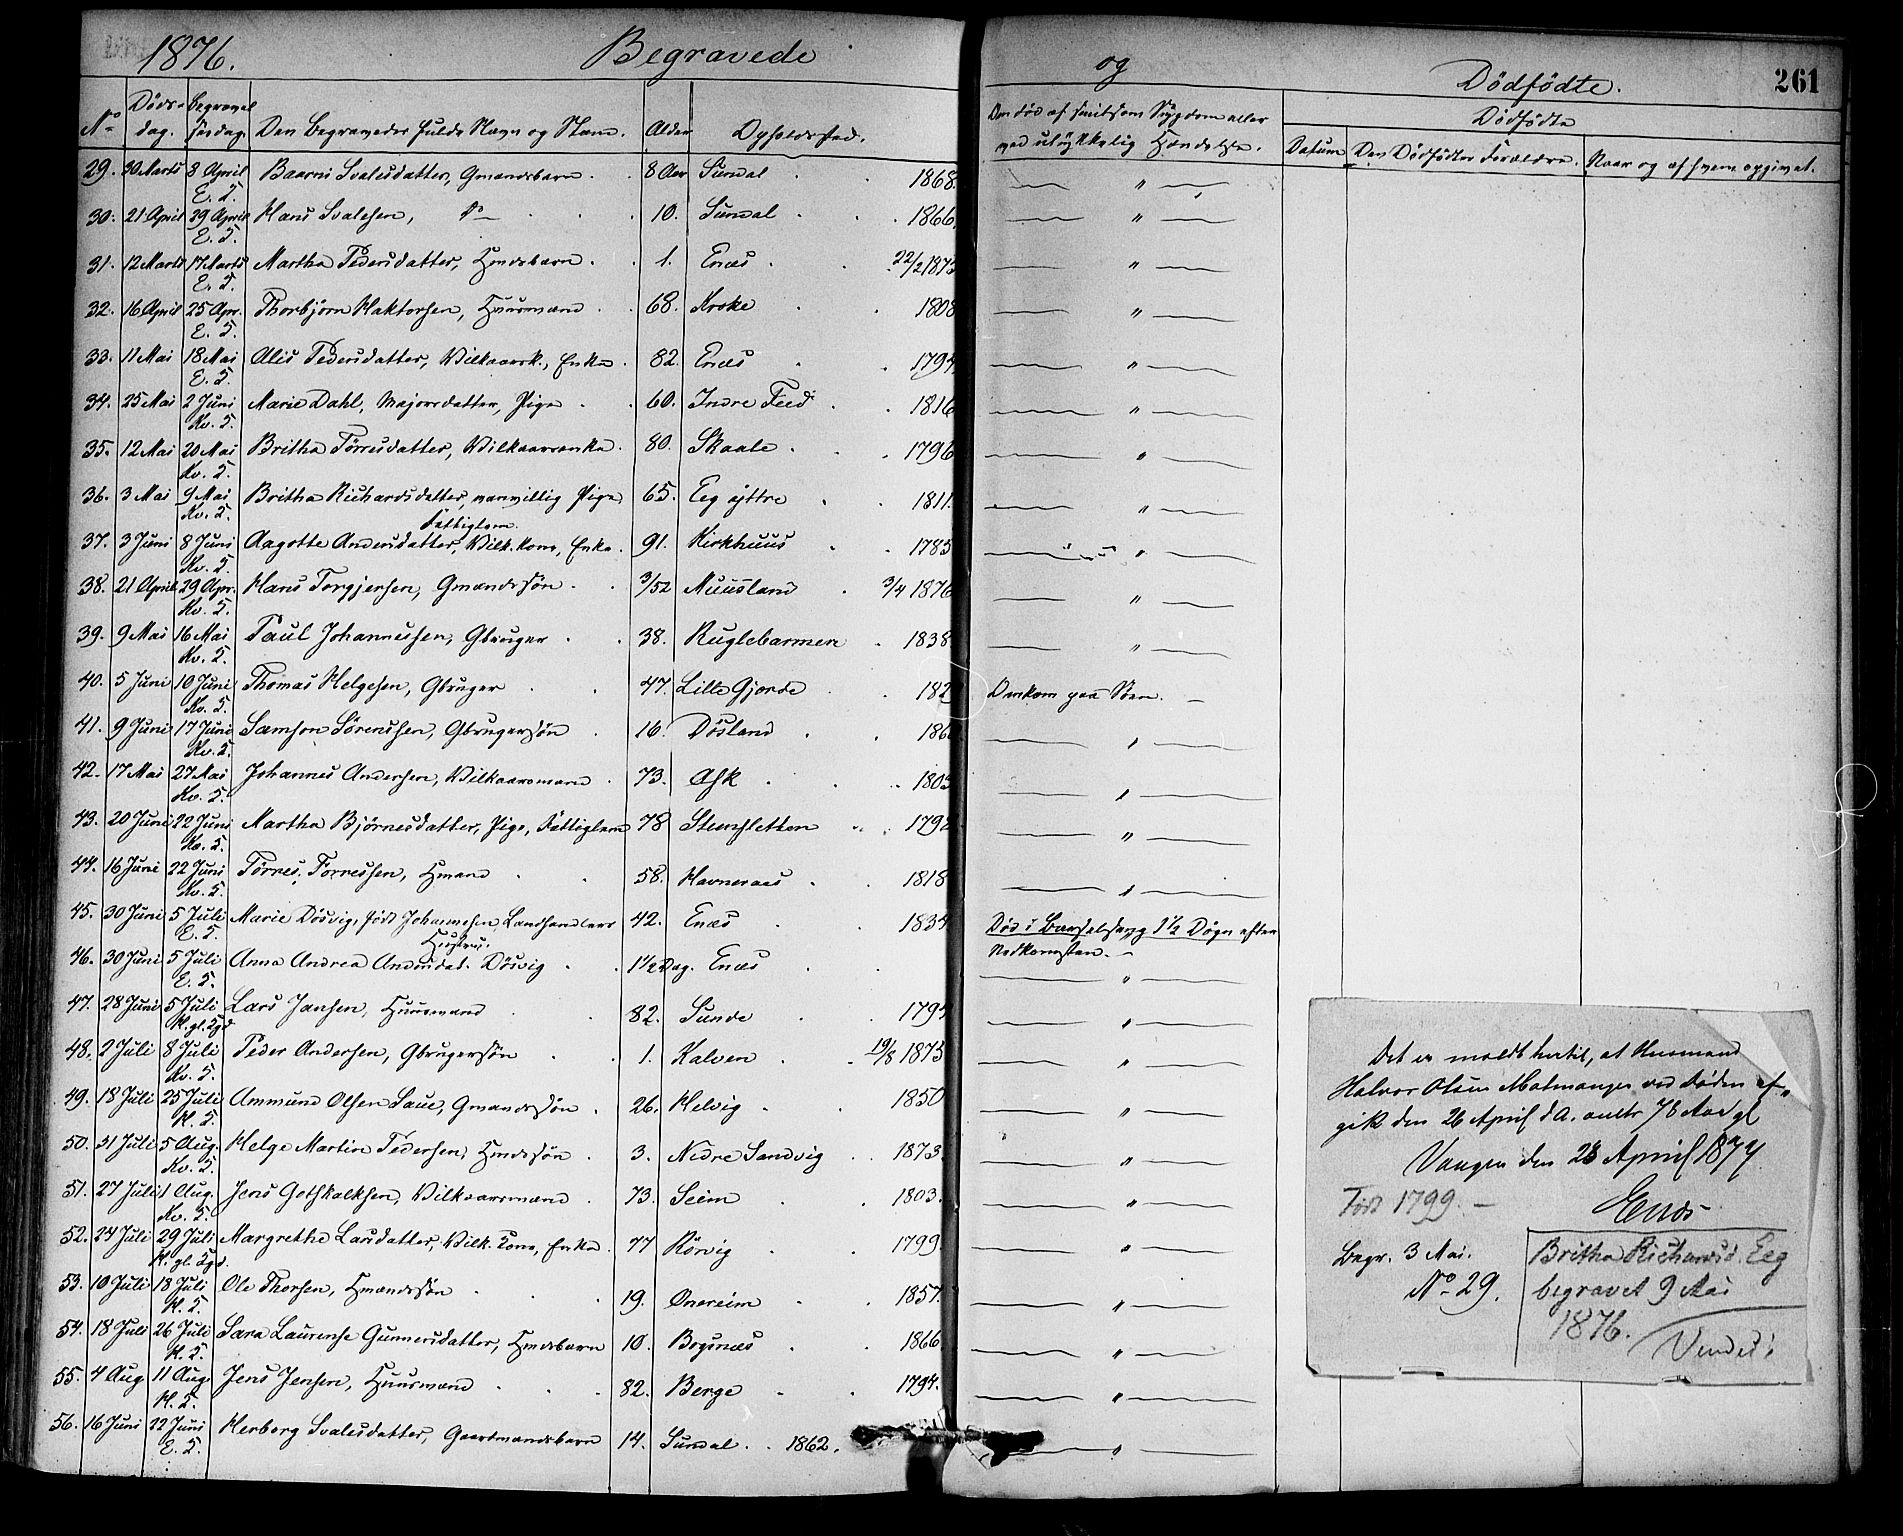 1876. Begravede og Dödfödte. 261
No Döds-dag. Begravelsesdag. Den Begravedes fulde Navn og Stand. Alder Opholdssted. Datum Den Dödfödtes Forældre. Naar og af hvem opgivet.
Dödfödte
29. 30 Marts 8 April E. S. Baarni Svalesdatter, Gmandsbarn 8 Aar Sundal 1868. "
30. 21 April 29 April E. S. Hans Svalesen, Do 10. Sundal 1866. "
31. 12 Marts 17 Marts E. S. Martha Pedersdatter, Hmdsbarn 1. Enæs 22/2 1875 "
32. 16 April 25 Apr. E. S. Thorbjörn Haktorsen, Huusmand 68. Kroke 1808 "
33. 11 Mai 18 Mai E. S. Alis Pedersdatter, Vilkaarsk., Enke 82. Enæs 1794 "
34. 25 Mai 2 Juni Kv. S. Marie Dahl, Majorsdatter, Pige 60. Indre Feed 1816 "
35. 12 Mai 20 Mai Kv. S. Britha Tørresdatter, Vilkaarsenke 80. Skaale 1796 "
36. 3 Mai 9 Mai Kv. S. Britha Richardsdatter, vanvittig Pige, Fattiglem. 65. Eeg ÿttre 1811. "
37. 3 Juni 8 Juni Kv. S. Aagotte Andersdatter, Vilk. Kone, Enke 91. Kirkhuus 1785 "
38. 21 April 29 Apr. Kv. S. Hans Torgjersen, Gmandssön 3/52 Muusland 3/4 1876 "
39. 9 Mai 16 Mai Kv. S. Paul Johannessen, Gbruger 38. Ruglebarmen 1838 "
40. 5 Juni 10 Juni Kv. S. Thomas Helgesen, Gbruger 47. Lille Gjerde 182 Omkom paa Söen.
41. 9 Juni 17 Juni Kv. S. Samson Sörensen, Gbrugersön 16. Dösland 186 "
42. 17 Mai 27 Mai Kv. S. Johannes Andersen, Vilkaarsmand 73. Ask 1803 "
43. 20 Juni 22 Juni Kv. S. Martha Björnesdatter, Pige, Fattiglem 78 Steinsletten 1798 "
44. 16 Juni 22 Juni Kv. S. Törres Torressen, Hmand 58. Havneraas 1818 "
45. 30 Juni 5 Juli E. S. Marie Dösvig, född Johannesen, Landhandlers Hustru. 42. Enæs 1834 Död i Barselseng 1½ Døgn efter Nedkomsten.
46. 30 Juni 5 Juli E. S. Anna Andrea Andersdat. Dösvig 1½ Dag. Enæs "
47. 28 Juni 5 Juli H. gl. Sgd Lars Jansen, Huusmand 82. Sunde 1794 "
48. 2 Juli 8 Juli Kv. S. Peder Andersen, Gbrugersön 1. Kalven 19/8 1875 "
49. 18 Juli 25 Juli H. S. Ammund Olsen Saue, Gmandssön 26. Helvig 1850 "
50. 31 Juli 5 Aug. Kv. S. Helge Martin Pedersen, Hmdssön 3. Nedre Sandvig 1873. "
51. 27 Juli 1 Aug. Kv. S. Jens Gotskalksen, Vilkaarsmand 73. Seim 1803. "
52. 24 Juli 29 Juli H. gl. Sgd. Margrethe Larsdatter, Vilk. Kone, Enke 77 Rörvig 1799. "
53. 10 Juli 18 Juli H. S. Ole Thorsen, Hmandssön 19. Onereim 1857. "
54. 18 Juli 26 Juli H. S. Sara Laurense Gunnersdatter, Hmdsbarn 10. Bogsnæs 1866. "
55. 4 Aug 11 Aug. H. S. Jens Jensen, Huusmand 82. Berge 1794. "
56. 16 Juni 22 Juni E. S. Herborg Svalesdatter, Gaardmandsbarn 14. Sundal. 1862. "
Det er meldt hertil, at Husmand
Halvor Olsen Malmanger ved Døden af-
gik den 26 April d A. omtr 78 Aar gl
Vangen den 28 April 1877
Enæs
Född 1799.
Begr. 3 Mai.
No 29.
Britha Richardsd. Eeg
begravet 9 Mai
1876.
Vended!